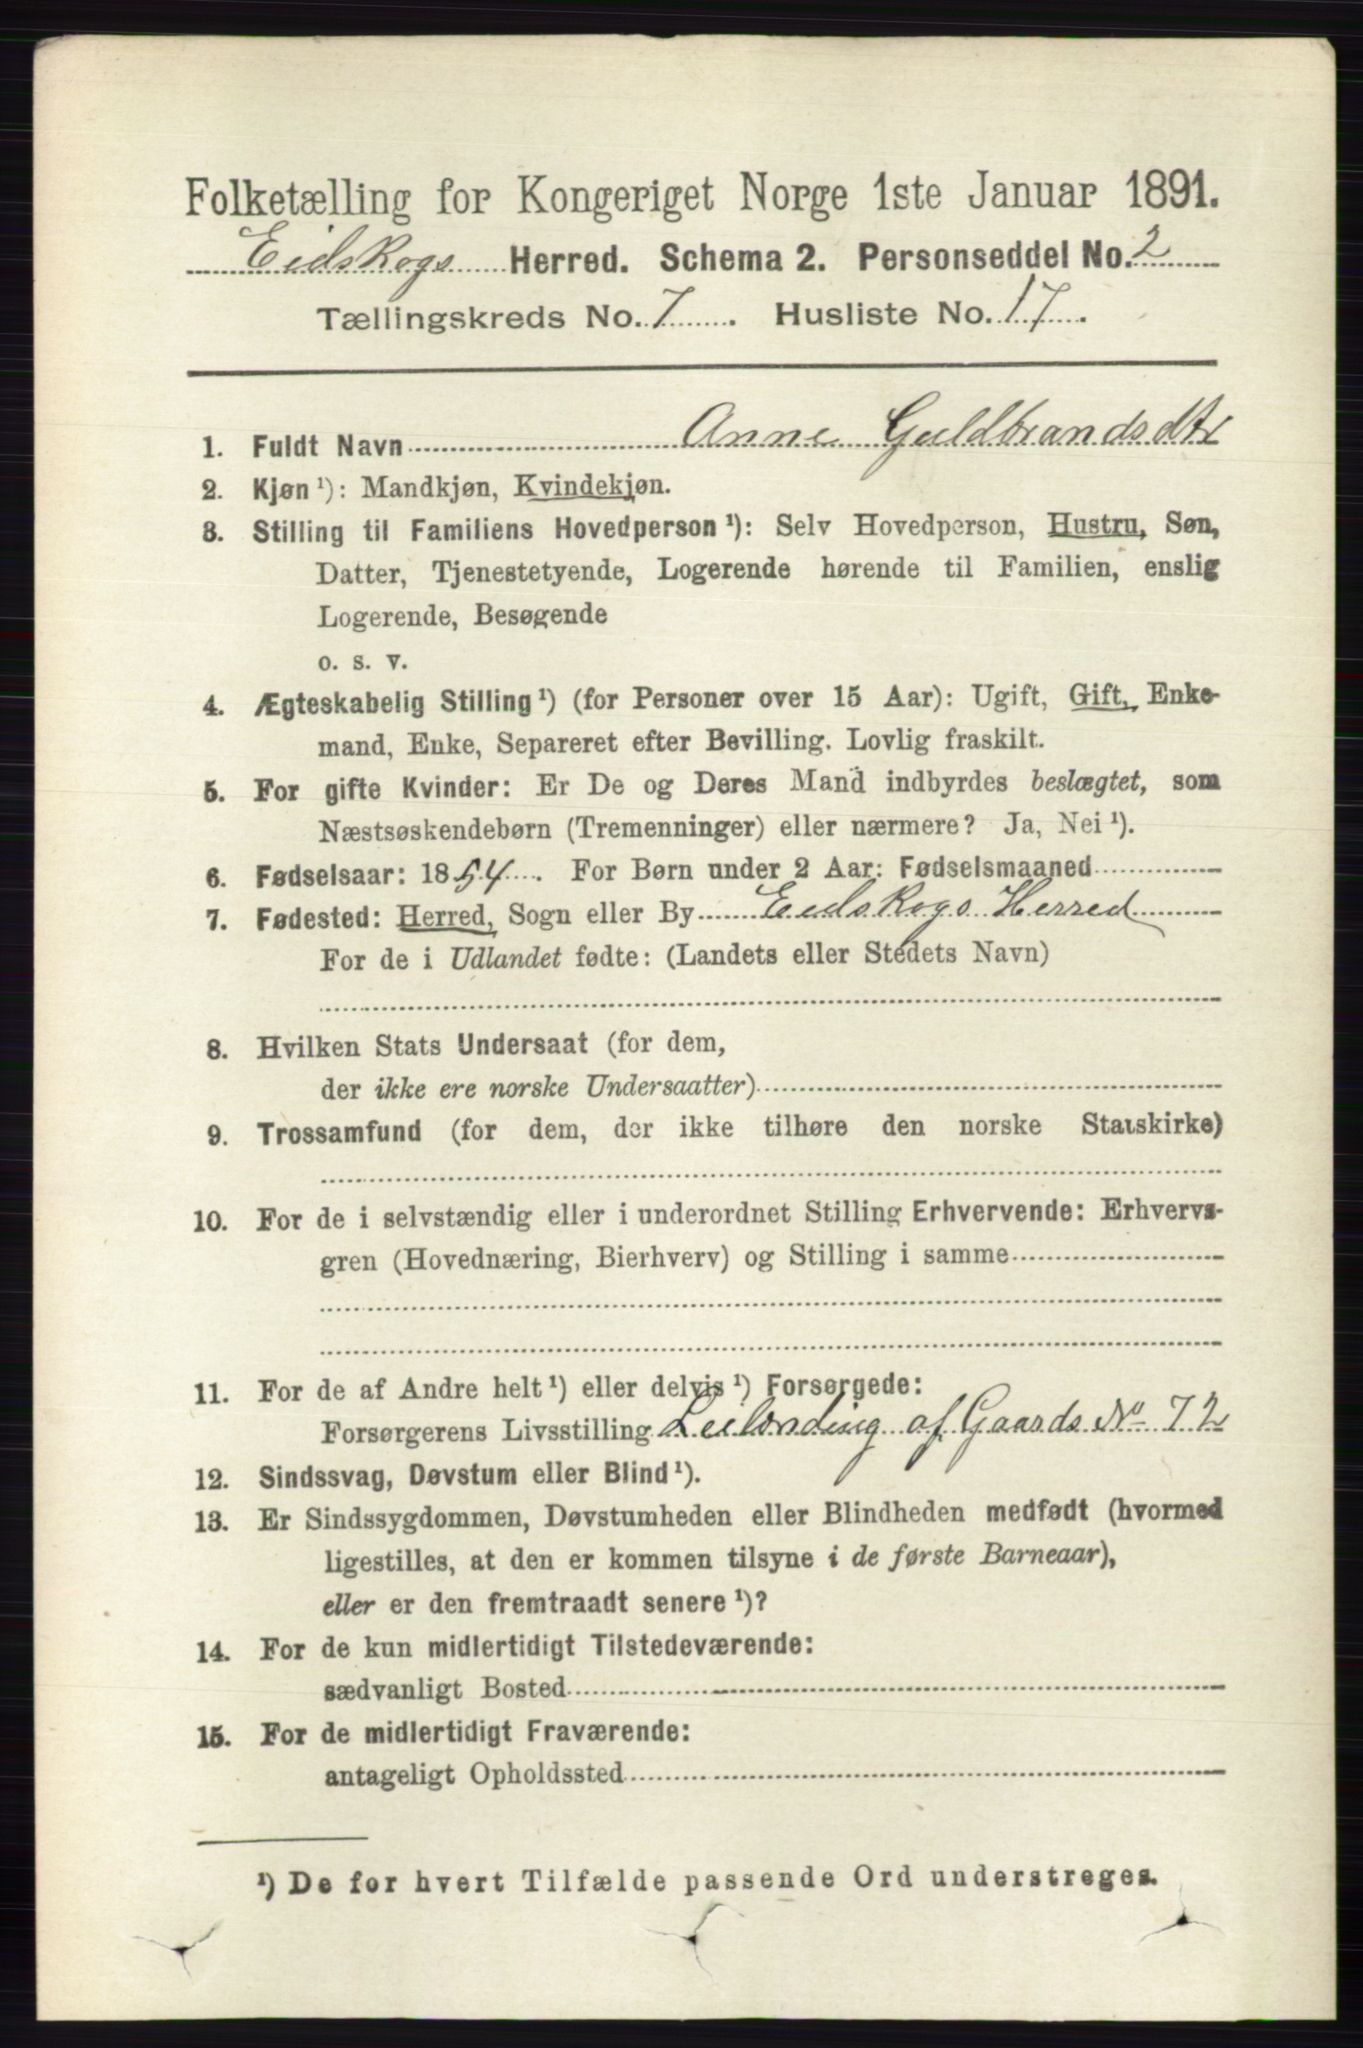 Folketælling for Kongeriget Norge 1ste Januar 1891.
Eidskogs Herred. Schema 2. Personseddel No. 2
Tællingskreds No. 7. Husliste No. 17.
1. Fuldt Navn Anne Guldbrandsdtr
2. Kjøn ¹): Mandkjøn, Kvindekjøn.
3. Stilling til Familiens Hovedperson ¹): Selv Hovedperson, Hustru, Søn,
Datter, Tjenestetyende, Logerende hørende til Familien, enslig
Logerende, Besøgende
o. s. v.
4. Ægteskabelig Stilling ¹) (for Personer over 15 Aar): Ugift, Gift, Enke-
mand, Enke, Separeret efter Bevilling. Lovlig fraskilt.
5. For gifte Kvinder: Er De og Deres Mand indbyrdes beslægtet, som
Næstsøskendebørn (Tremenninger) eller nærmere? Ja, Nei ¹).
6. Fødselsaar: 1854. For Børn under 2 Aar: Fødselsmaaned
7. Fødested: Herred, Sogn eller By Eidskogs Herred
For de i Udlandet fødte: (Landets eller Stedets Navn)
8. Hvilken Stats Undersaat (for dem,
der ikke ere norske Undersaatter)
9. Trossamfund (for dem, der ikke tilhøre den norske Statskirke)
10. For de i selvstændig eller i underordnet Stilling Erhvervende: Erhvervs-
gren (Hovednæring, Bierhverv) og Stilling i samme
11. For de af Andre helt ¹) eller delvis ¹) Forsørgede:
Forsørgerens Livsstilling Leilænding af Gaards No 72
12. Sindssvag, Døvstum eller Blind ¹).
13. Er Sindssygdommen, Døvstumheden eller Blindheden medfødt (hvormed
ligestilles, at den er kommen tilsyne i de første Barneaar),
eller er den fremtraadt senere ¹)?
14. For de kun midlertidigt Tilstedeværende:
sædvanligt Bosted
15. For de midlertidigt Fraværende:
antageligt Opholdssted
¹) De for hvert Tilfælde passende Ord understreges.